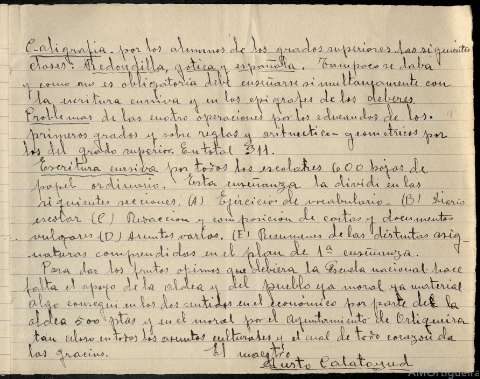 Caligrafia por los alumnos de los grados superiores las siguientes
clases: Redondilla, gotica y española. Tampoco se daba
y como no es obligatoria debe enseñarse simultanyamente con
la escritura cursiva y en los epigrafes de los deberes.
Problemas de las cuatro operaciones por los educandos de los
primeros grados y sobre reglas y aritmetica-geometricos por
los del grado superior. En total 311.
Escritura cursiva por todos los escolares 600 hojas de
papel ordinario. Esta enseñanza la dividi en las
siguientes secciones. (A) Ejercicios de vocabulario. (B) Diario
escolar (C) Redaccion y composición de cartas y documentos
vulgares (D) Asuntos varios. (E) Resumenes de las distintas asig-
naturas comprendidas en el plan de 1ª enseñanza.
Para dar los frutos opimos que debiera la Escuela nacional hace
falta el apoyo de la aldea y del pueblo ya moral ya material
algo consegui en los dos sentidos en el económico por parte de la
aldea 500 ptas y en el moral por el Ayuntamiento de Ortigueira
tan celoso en todos los asuntos culturales y al cual de todo corazon da
las gracias. El maestro
Justo Calatayud
AMOrtigueira